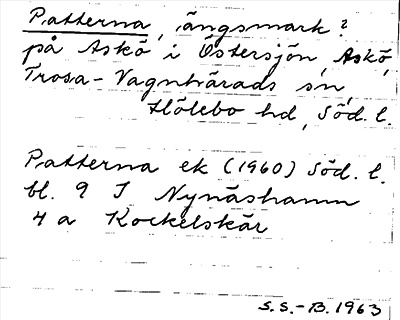 Patterna, ängsmark?
på Askö i Östersjön, Askö,
Trosa-Vagnhärads sn,
Hölebo hd, Söd. l.
Patterna ek (1960) Söd. l.
bl. 9 I Nynäshamn
4 a Kockelskär
S.S.-B. 1963